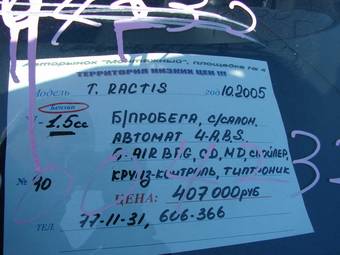 Авторынок "Монтажный", площадка № 4
ТЕРРИТОРИЯ НИЗКИХ ЦЕН !!!
Модель T. RACTIS год 10.2005
Бензин
1.5cc Б/ПРОБЕГА, С/САЛОН,
АВТОМАТ 4-A.B.S.
6-AIRBEG, CD, MD, СПОЙЛЕР,
№ 40 КРУИЗ-КОНТРОЛЬ, ТИПТРОНИК
ЦЕНА: 407 000 РУБ
ТЕЛ. 77-11-31, 606-366